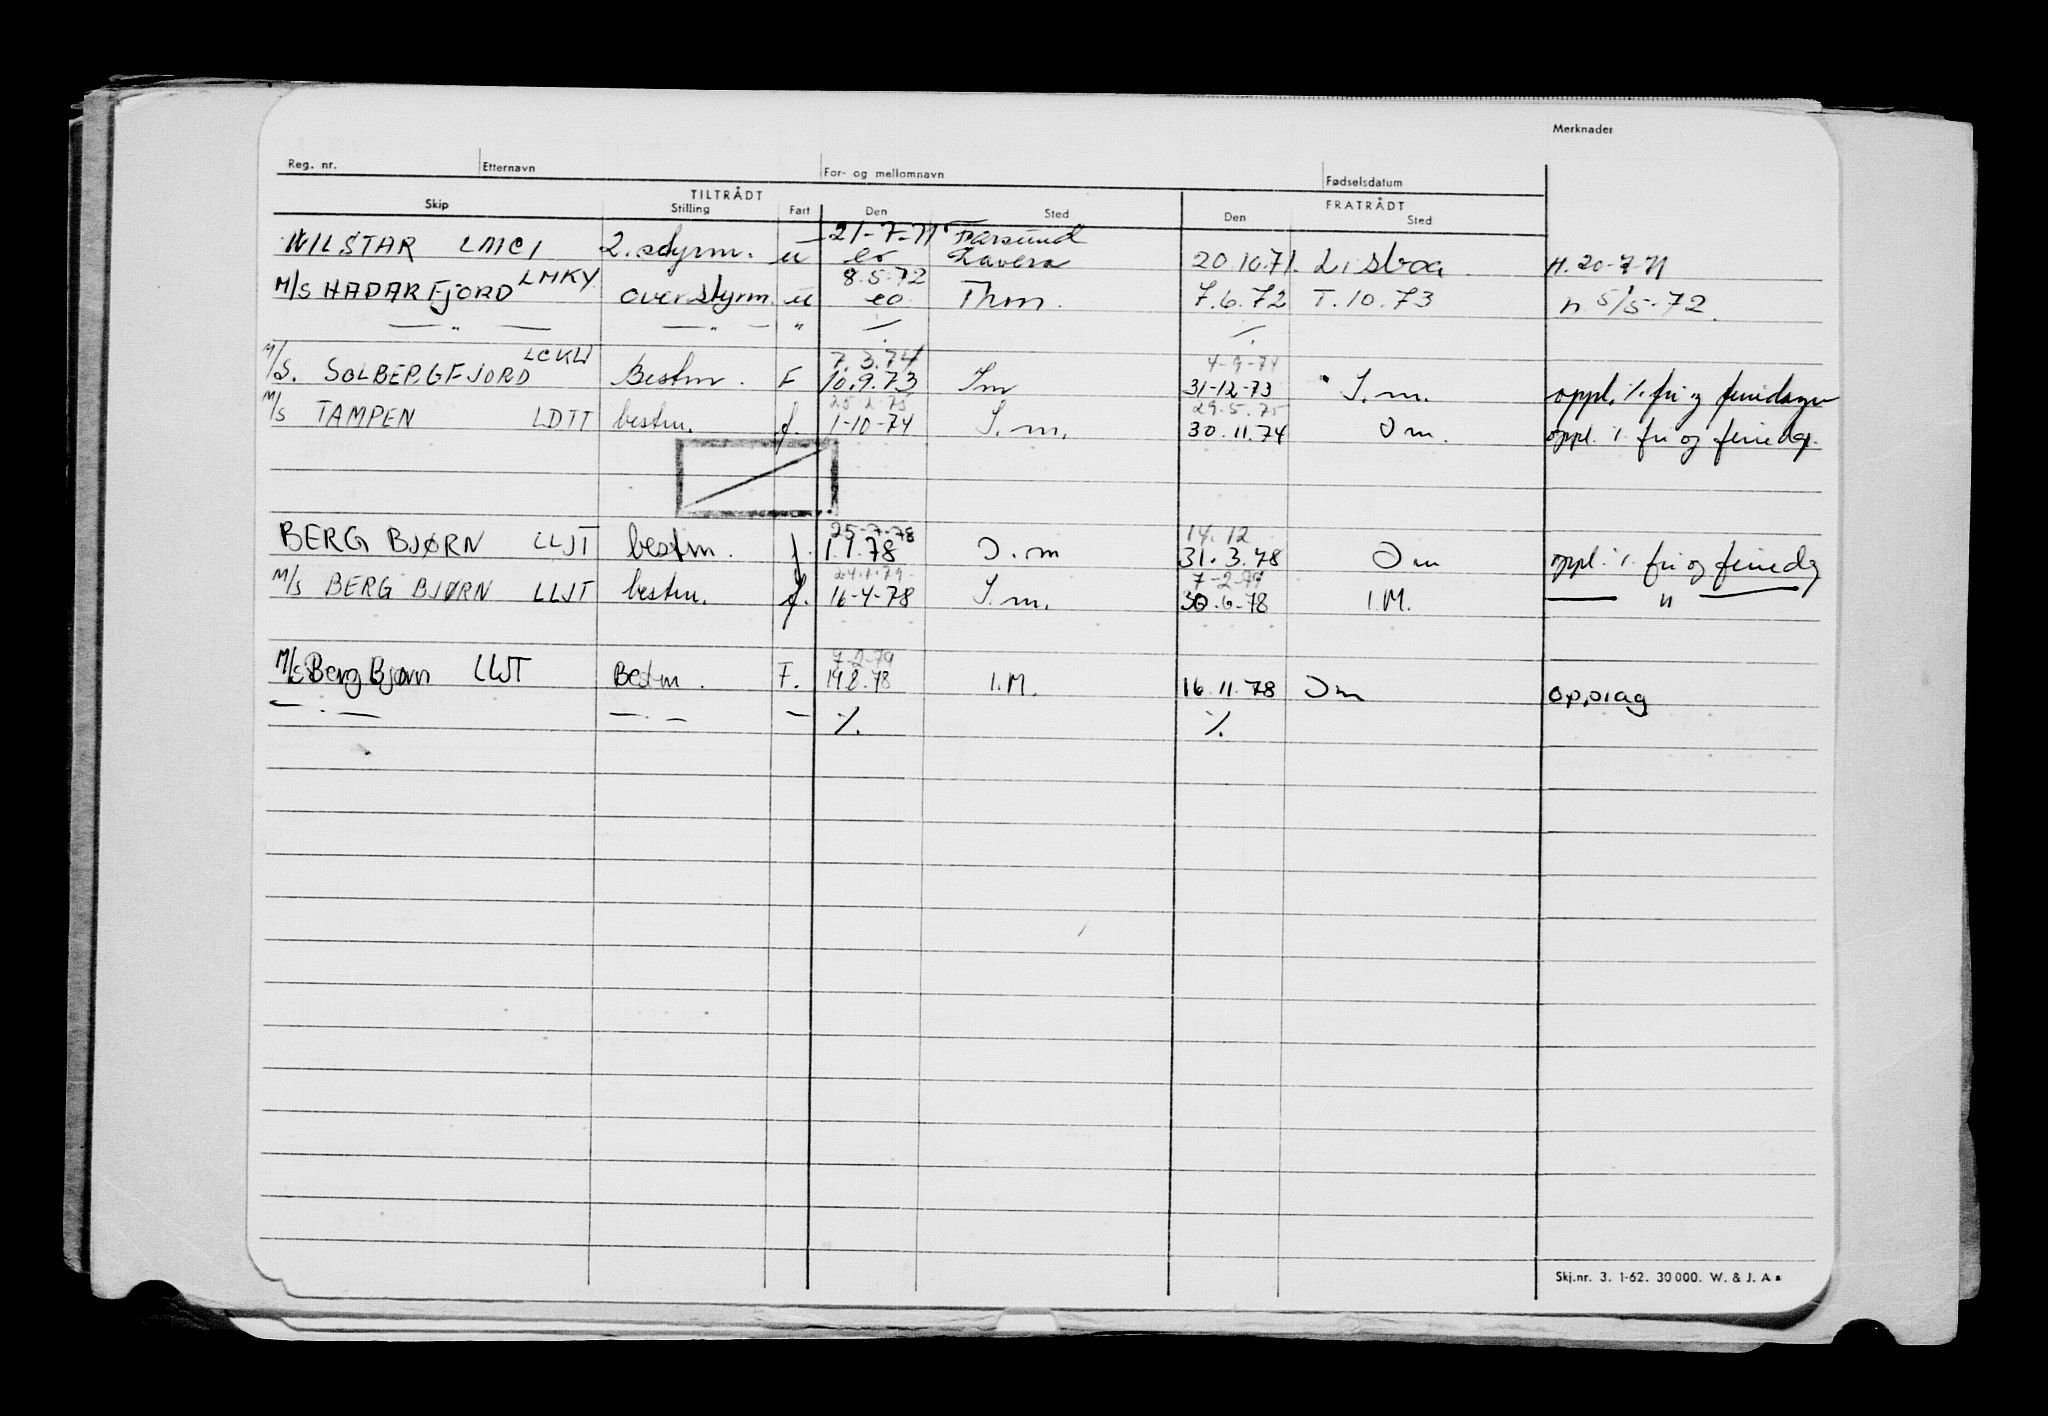 Merknader
Reg. nr. Etternavn For- og mellomnavn Fødselsdatum
TILTRÅDT FRATRÅDT
Skip Stilling Fart Den Sted Den Sted
21-7-71 Farsund
WILSTAR LMCI 2. styrm. u eo Lavera 20.10.71. Lisboa H. 20-7-71
LMKY 8.5.72
M/S HADARFJORD overstyrm. u eo Thm. 7.6.72 T.10.73 n. 5/5-72.
— " — — " — " ./. ./.
LCKW 7.3.74 4-9-74
M/S. SOLBERGFJORD Bestm. F 10.9.73 Im 31-12-73 I.m. oppl. % fri og feriedager
25-2-75 29.5.75
M/S TAMPEN LDTT bestm. f. 1-10-74 I.m. 30.11.74 Im. oppl. % fri og feriedg.
25-7-78 14.12
BERG BJØRN LLJT bestm. f. 1.1.78 I.m 31.3.78 Im oppl. % fri og feriedg
24.1.79. 7-2-79
M/S BERG BJØRN LLJT bestm. f. 16-4-78 I.m. 30.6.78 I.M. — " —
7-2-79
M/S Berg Bjørn LLJT Bestm. F. 19.8.78 I.M. 16.11.78 Im
— . — — . — — %. %.
Skj.nr. 3. 1-62. 30 000. W. & J. A s